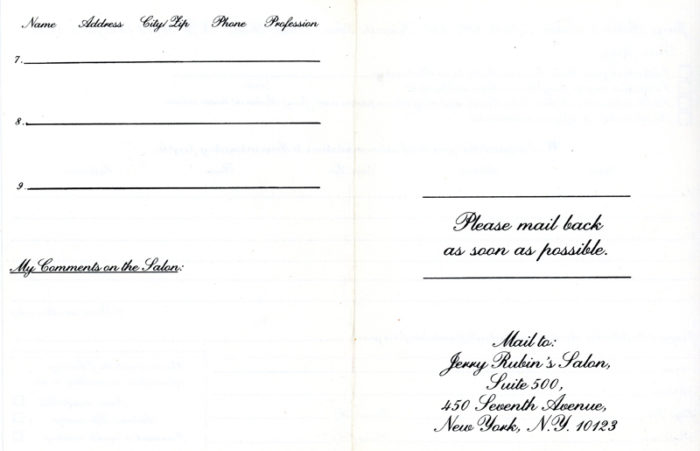 Name Address City/Zip Phone Profession
7.
8.
9.
My Comments on the Salon:
Please mail back
as soon as possible.
Mail to:
Jerry Rubin's Salon,
Suite 500,
450 Seventh Avenue,
New York, N.Y. 10123